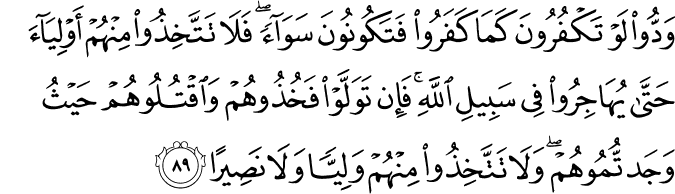 وَدُّوا۟ لَوْ تَكْفُرُونَ كَمَا كَفَرُوا۟ فَتَكُونُونَ سَوَآءًۭ ۖ فَلَا تَتَّخِذُوا۟ مِنْهُمْ أَوْلِيَآءَ
حَتَّىٰ يُهَاجِرُوا۟ فِى سَبِيلِ ٱللَّهِ ۚ فَإِن تَوَلَّوْا۟ فَخُذُوهُمْ وَٱقْتُلُوهُمْ حَيْثُ
وَجَدتُّمُوهُمْ ۖ وَلَا تَتَّخِذُوا۟ مِنْهُمْ وَلِيًّۭا وَلَا نَصِيرًا ٨٩